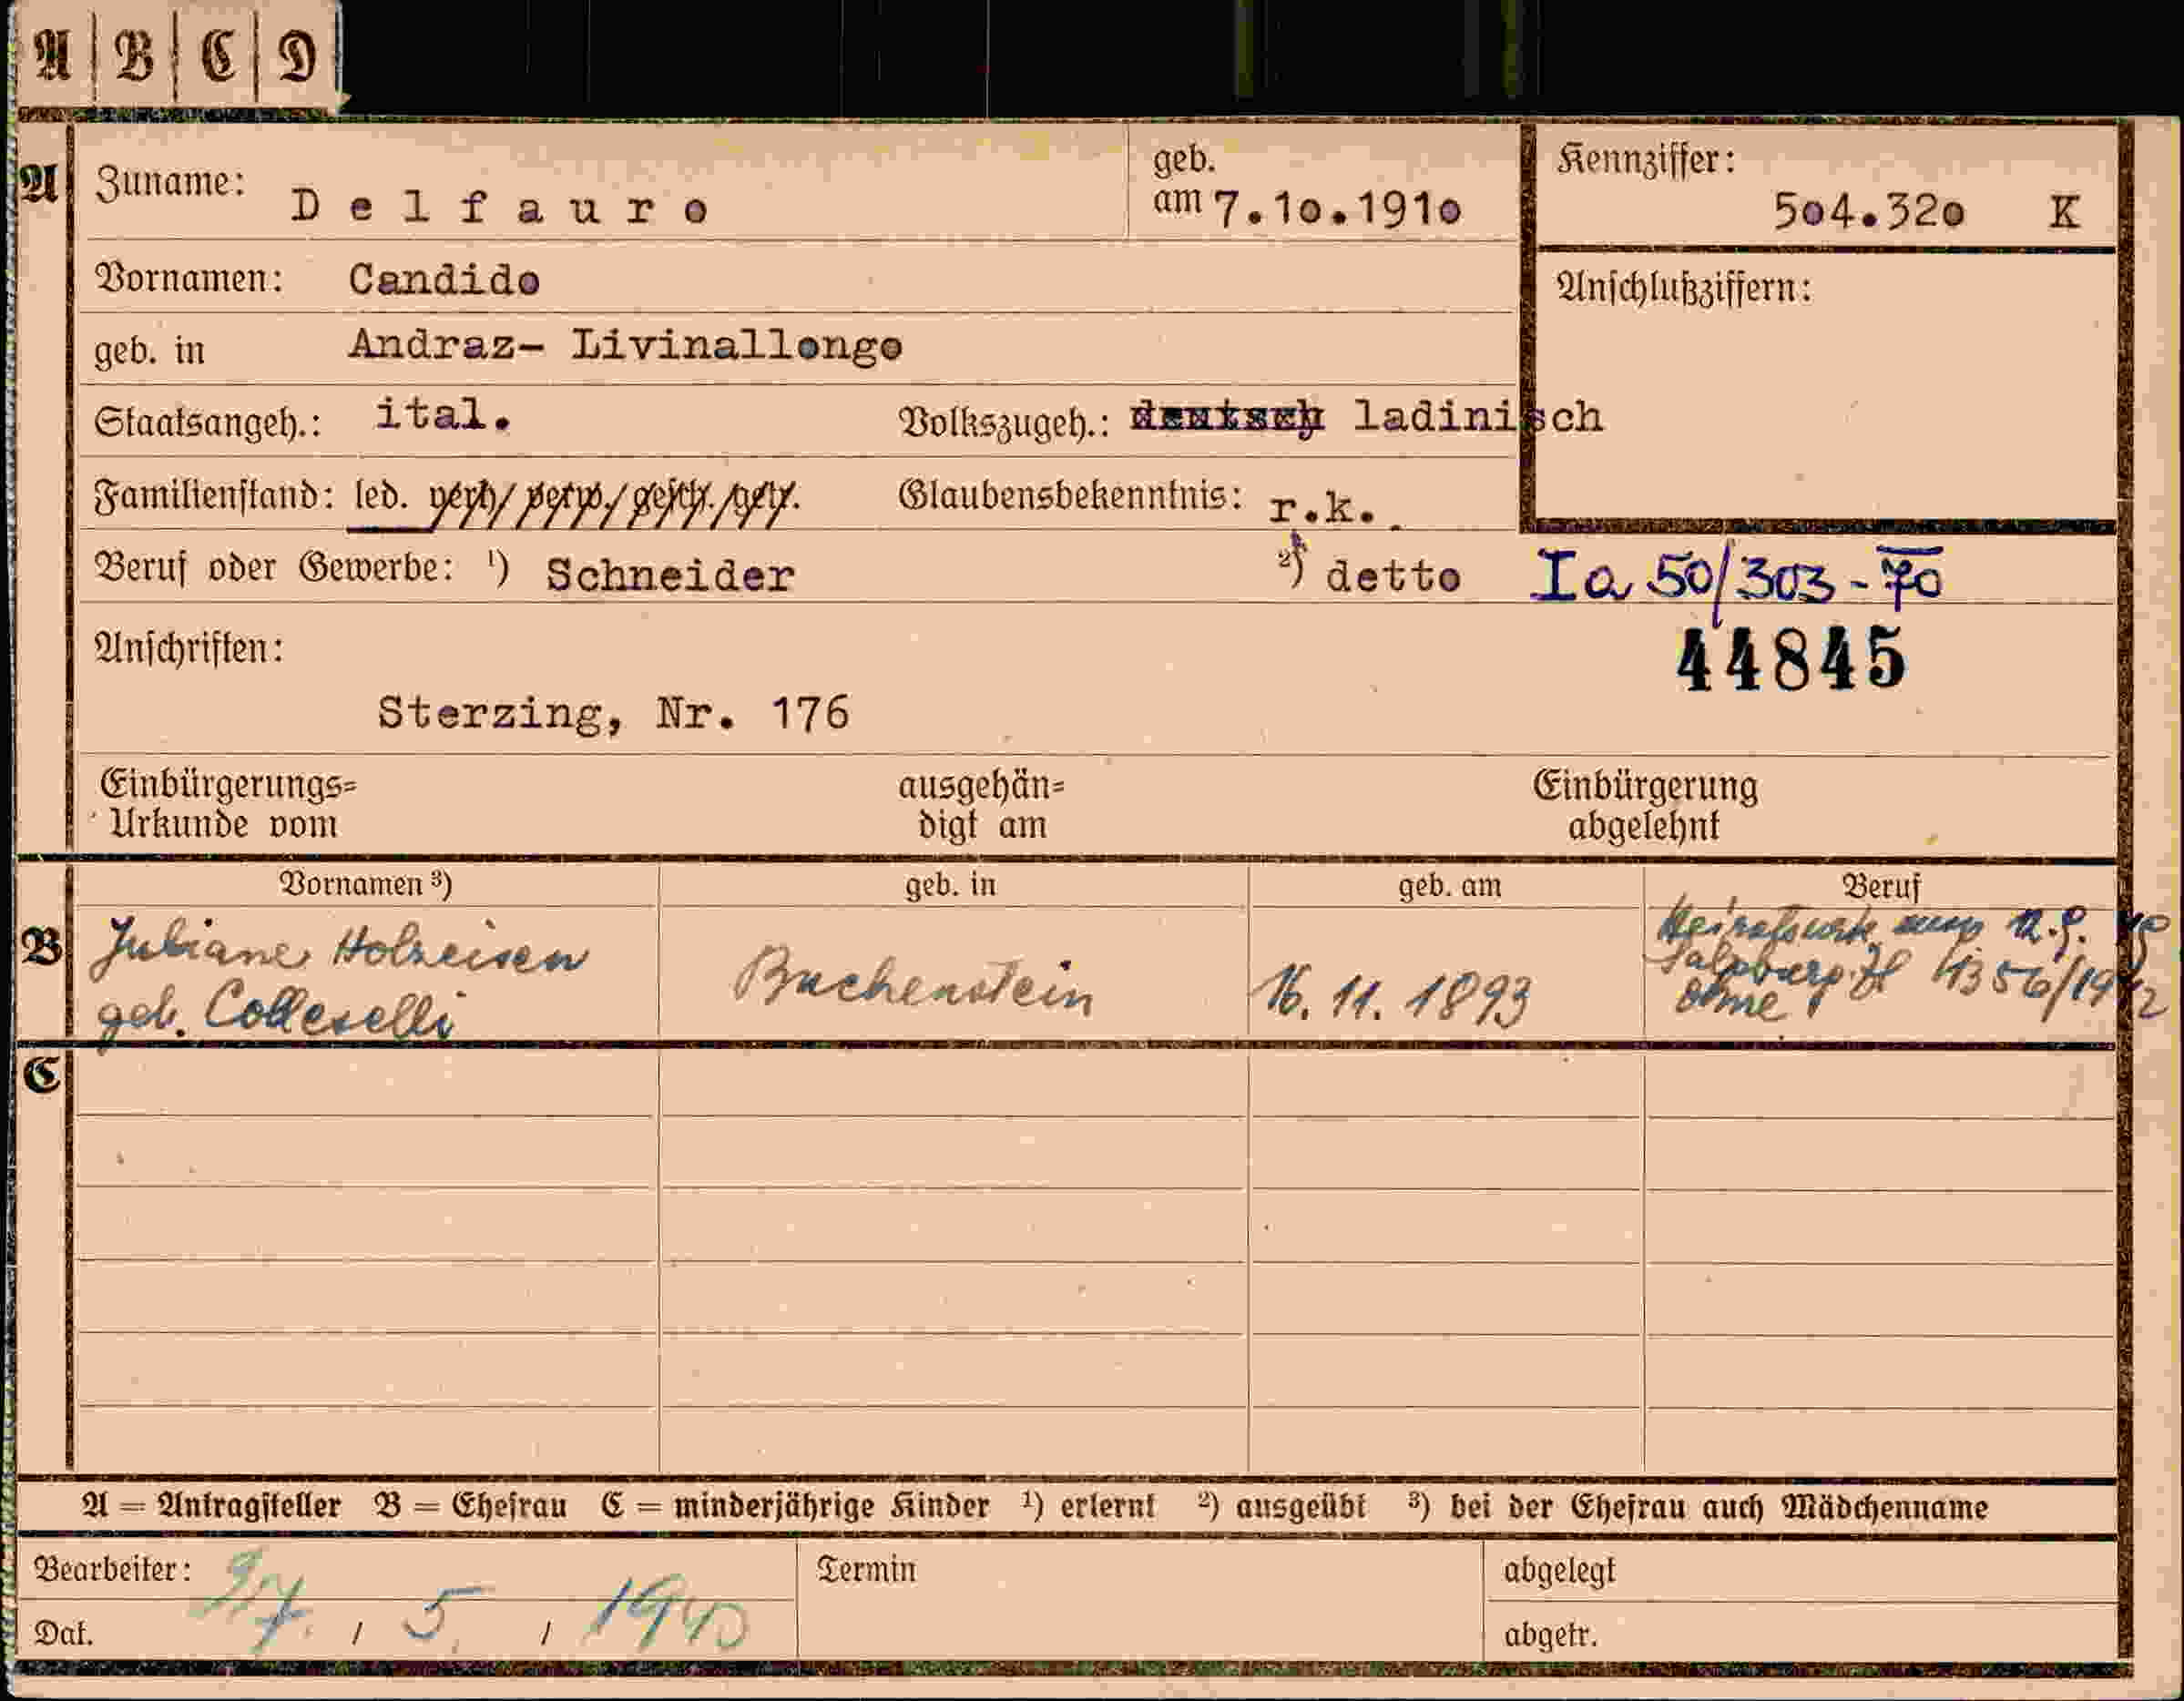 A B C D
A Zuname: Delfauro geb. am 7.10.1910 Kennziffer: 504.320 K
Vornamen: Candido Anschlußziffern:
geb. in Andraz- Livinallongo
Staatsangeh.: ital. Volkszugeh.: deutsch ladinisch
Familienstand: led. verh/ verw./ gesch./getr. Glaubensbekenntnis: r.k.
Beruf oder Gewerbe: ¹) Schneider ²) detto Ia 50/303-70
Anschriften: 44845
Sterzing, Nr. 176
Einbürgerungs= ausgehän= Einbürgerung
Urkunde vom digt am abgelehnt
Vornamen ³) geb. in geb. am Beruf
B Juliane Holzeisen Buchenstein 16. 11. 1893 Heiratsurk.
geb. Colleselli Salzburg 1356/1942
ohne
C
A = Antragsteller B = Ehefrau C = minderjährige Kinder ¹) erlernt ²) ausgeübt ³) bei der Ehefrau auch Mädchenname
Bearbeiter: Termin abgelegt
Dat. 27. / 5. / 1940 abgetr.